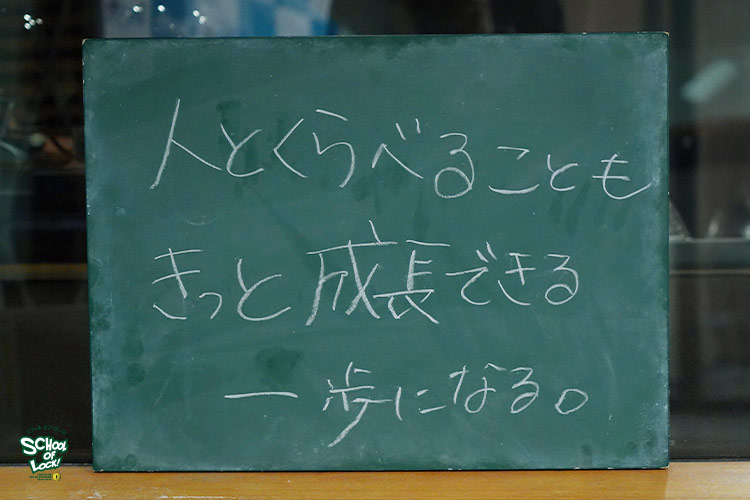 人とくらべることも
きっと成長できる
一歩になる。
SCHOOL
OF
LOCK!